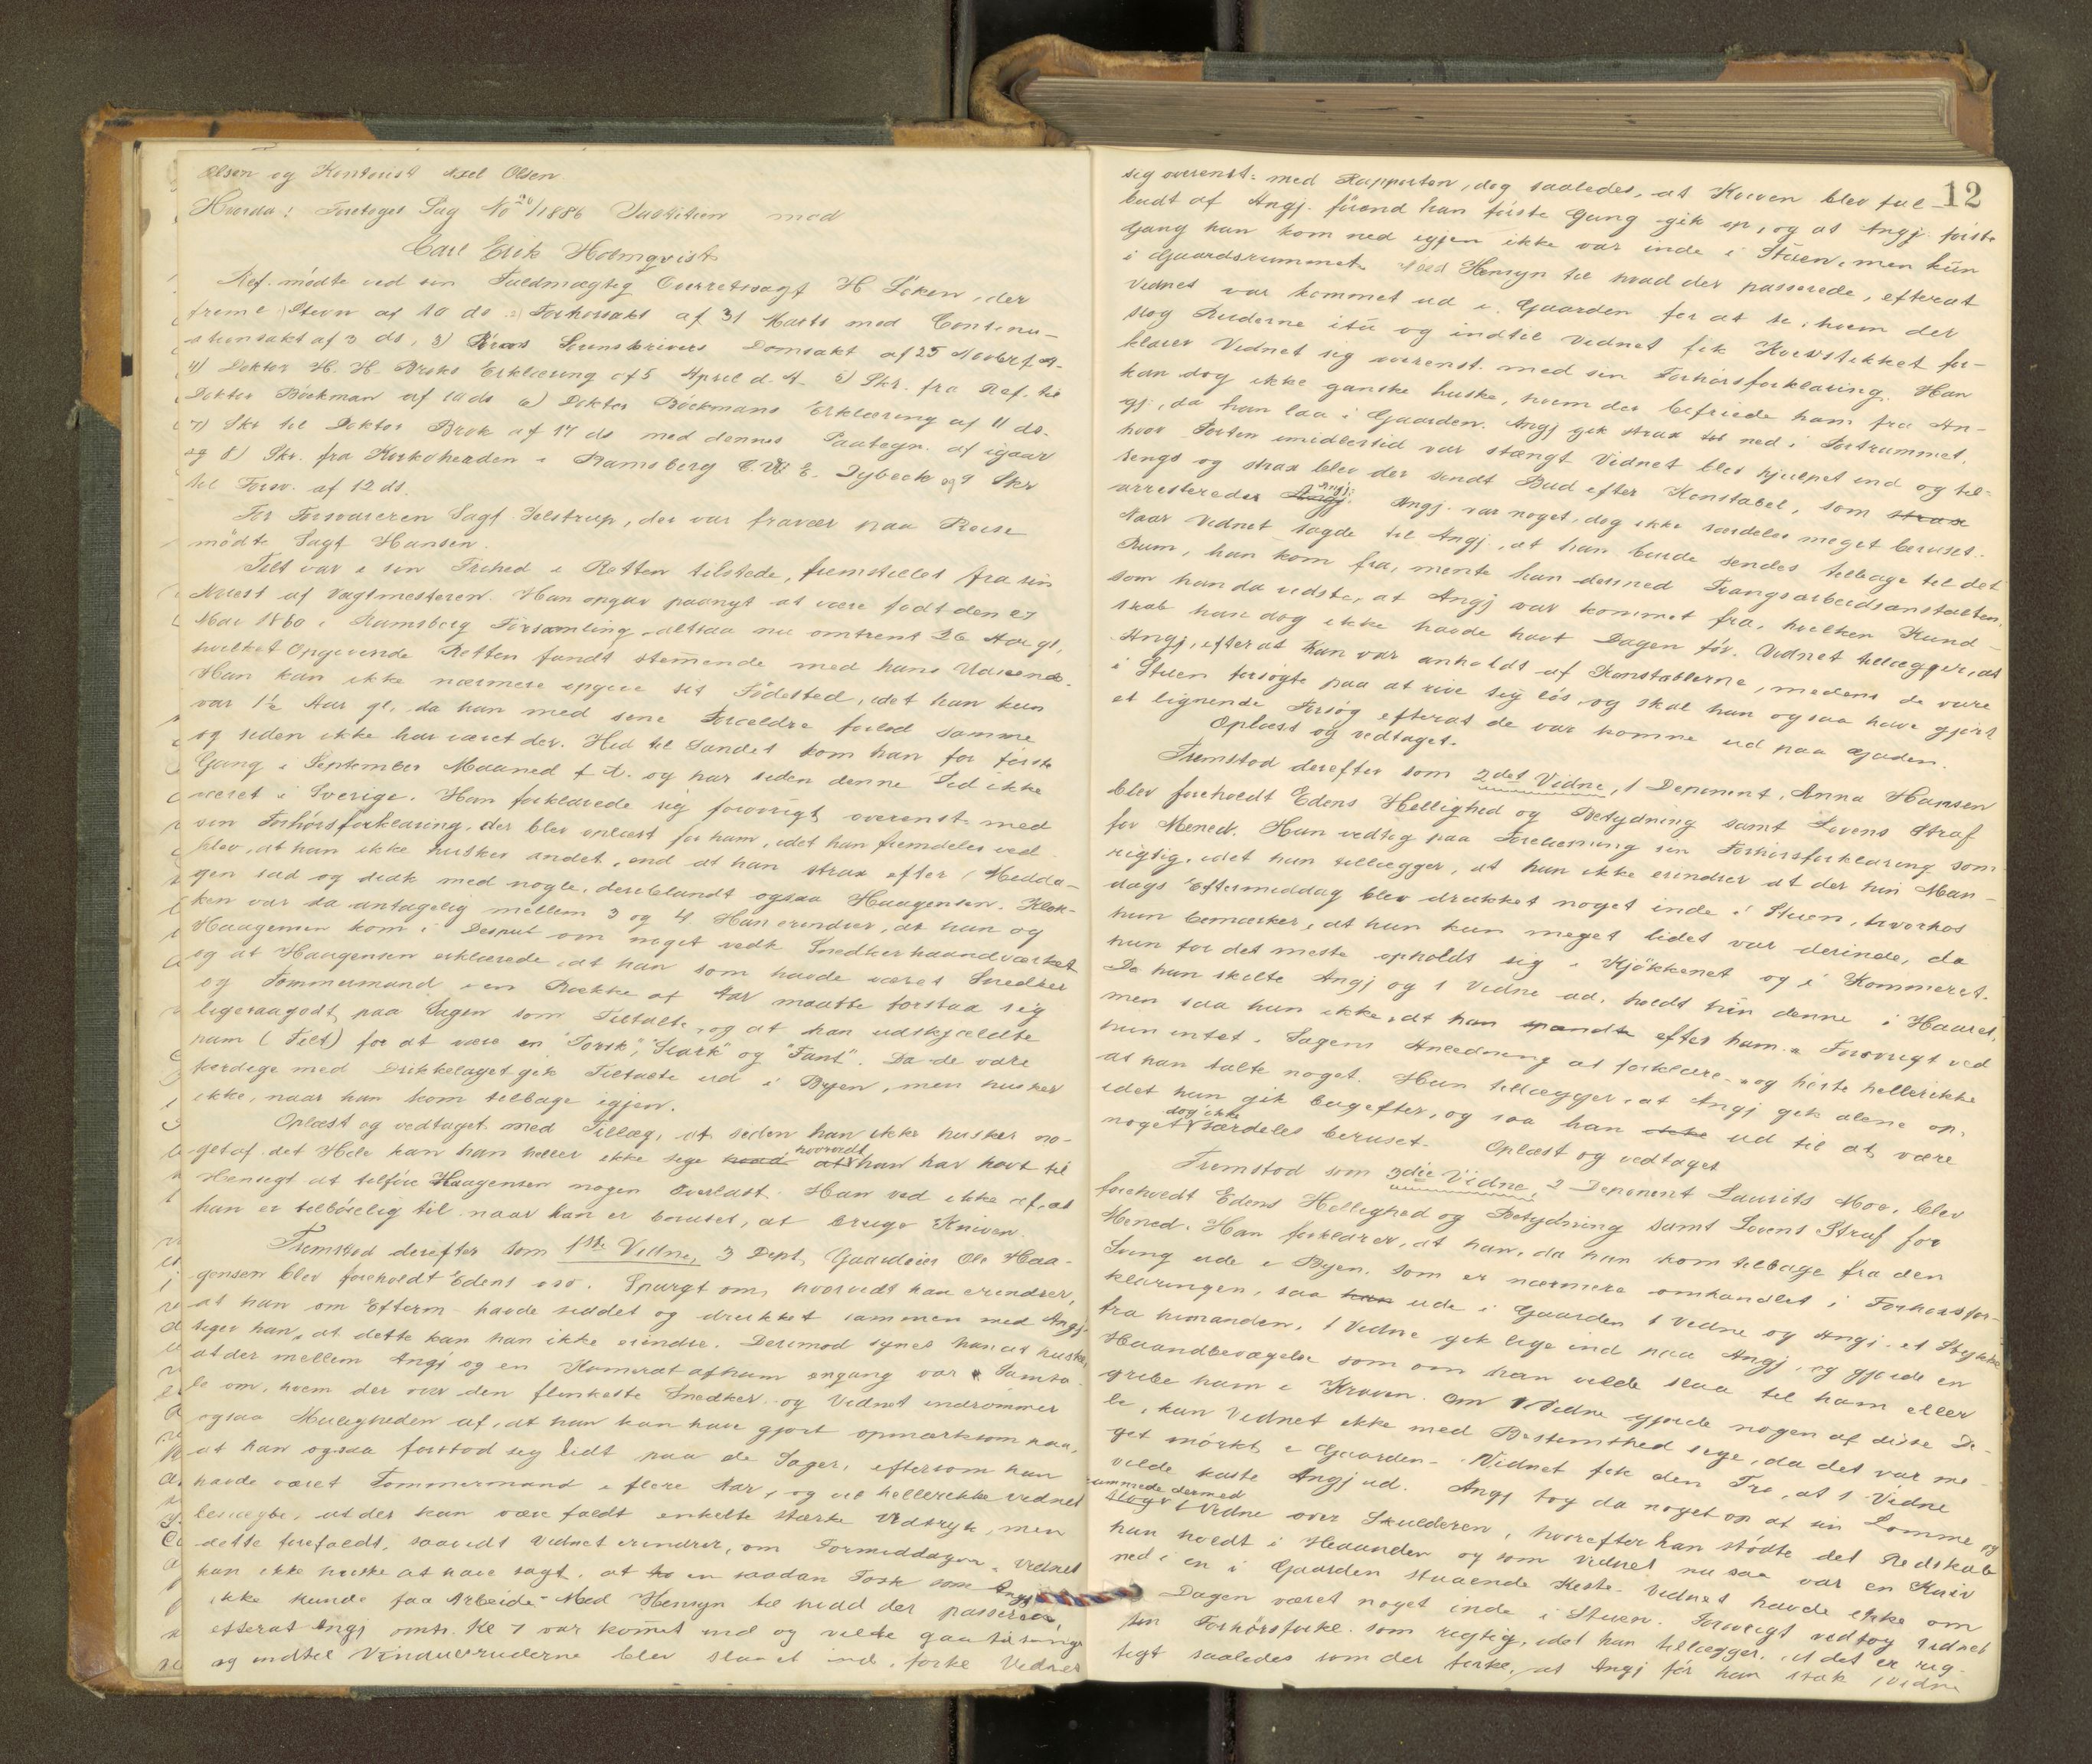 Olsen og Kontorist Axel Olsen
Hvorda: Foretoges Sag No 20/1886 Justitien mod
Carl Erik Holmqvist
Ref. mödte ved sin Fuldmægtig Overretssagf H Löken, der
freml Stevn af 10 ds 2) Forhörsakt af 31 Marts med Continu-
ationsakt af 3 ds, 3) Sorenskrivers Domsakt af 25 Novbr f. A.
4) Doktor H. H. Broks Erklæring af 5 April d. A. 5) Skr. fra Ref. til
Doktor Böckman af 10 ds 6) Doktor Böckmans Erklæring af 11 ds.
7) Skr til Doktor Brok af 17 ds med dennes Paategn. af igaar
og 8) Skr. fra Kyrkoherden i Ramsberg C. W. E. Dybeck og 9 Skr
til Forsv. af 12 ds.
For Forsvareren Sagf Jelstrup, der var fravær paa Reise
mödte Sagf Hansen.
Tilt var i sin Frihed i Retten tilstede, fremstillet fra sin
Arrest af Vagtmesteren. Han opgav paanyt at være födt den 27
Mai 1860 i Ramsberg Församling, altsaa nu omtrent 26 Aar gl,
hvilket Opgivende Retten fandt stem̅ende med hans Udseende.
Han kan ikke nærmere opgive sit Födested, idet han kun
var 1½ Aar gl, da han med sine Forældre forlod samme
og siden ikke har været der. Hid til Landet kom han for förste
Gang i September Maaned f A. og har siden denne Tid ikke
været i Sverige. Han forklarede sig forövrigt overenst= med
sin Forhörsforklaring, der blev oplæst for ham, idet han fremdeles ved
blev, at han ikke husker andet, end at han strax efter Midda-
gen sad og drak med nogle, deriblandt ogsaa Haagensen. Klok-
ken var da antagelig mellem 3 og 4 Han erindrer, at han og
Haagensen kom i Disput om noget vedk Snedkerhaandværket
og at Haagensen erklærede, at han som havde været Snedker
og Tømmermand i en Række af Aar maatte forstaa sig
ligesaagodt paa Sagen som Tiltalte, og at han udskjældte
ham (Tilt) for at være en "Torsk", "Slark" og "Fant". Da de vare
færdige med Drikkelaget gik Tiltalte ud i Byen, men husker
ikke, naar han kom tilbage igjen.
Oplæst og vedtaget med Tillæg, at siden han ikke husker no-
get af det Hele kan han heller ikke sige hvad hvorvidt at han har havt til
Hensigt at tilföie Haagensen nogen Overlast. Han ved ikke af, at
han er tilböielig til naar han er beruset, at bruge Kniven.
Fremstod derefter som 1ste Vidne, 3 Dept, Gaardeier Ole Haa-
gensen blev foreholdt Edens oso. Spurgt om, hvorvidt han erindrer,
at han om Efterm havde siddet og drukket sammen med Angj.
siger han, at dette kan han ikke erindre. Derimod synes han at huske,
at der mellem Angj og en Kamerat af ham engang var Samta-
le om, hvem der var den flinkeste Snedker og Vidnet indrømmer
ogsaa Muligheden af, at han kan have gjort opmærksom paa,
at han ogsaa forstod sig lidt paa de Sager, eftersom han
havde været Tømmermand i flere Aar, og vil hellerikke Vidnet
benægte, at der kan være faldt enkelte stærke Udtryk, men
dette forefaldt, saavidt Vidnet erindrer, om Formiddagen. Vidnet
kan ikke huske at have sagt, at en saadan Torsk som Angj
ikke kunde faa Arbeide. Med Hensyn til hvad der passerede
efterat Angj omtr. Kl 7 var kom̅et ind og vilde gaa tilsengs
og indtil Vinduesruderne blev slaaet ind, forkl Vidnet
12
sig overenst= med Rapporten, dog saaledes, at Kniven blev fal-
budt af Angj. förend han förste Gang gik op, og at Angj förste
Gang han kom ned igjen ikke var inde i Stuen, men kun
i Gaardsrummet. Med Hensyn til hvad der passerede, efterat
Vidnet var kommet ud i Gaarden for at se, hvem der
slog Ruderne itu og indtil Vidnet fik Knivstikket for-
klarer Vidnet sig overenst. med sin Forhörsforklaring. Han
kan dog ikke ganske huske, hvem der befriede ham fra An-
gj, da han laa i Gaarden. Angj gik strax ned i Portrummet,
hvor Porten imidlertid var stængt Vidnet blev hjulpet ind og til-
sengs og strax blev der sendt Bud efter Konstabel, som strax
arresterede Angj. Angj. Angj. var noget, dog ikke særdeles meget beruset.
Naar Vidnet sagde til Angj, at han burde sendes tilbage til det
Rum, han kom fra, mente han dermed Tvangsarbeidsanstalten,
som han da vidste, at Angj var kommet fra, hvilken Kund-
skab han dog ikke havde havt Dagen för. Vidnet tillægger, at
Angj, efterat han var anholdt af Konstablerne, medens de vare
i Stuen forsögte paa at rive sig lös, og skal han ogsaa have gjort
et lignende Forsög efterat de var komne ud paa Gaden.
Oplæst og vedtaget.
Fremstod derefter som 2det Vidne, 1 Deponent, Anna Hansen
blev foreholdt Edens Hellighed og Betydning samt Lovens Straf
for Mened. Hun vedtog paa Forelæsning sin Forhörsforklaring som
rigtig, idet hun tillægger, at hun ikke erindrer at der hin Man-
dags Eftermiddag blev drukket noget inde i Stuen, hvorhos
hun bemærker, at hun kun meget lidet var derinde, da
hun for det meste opholdt sig i Kjökkenet og i Kammeret.
Da hun skilte Angj og 1 Vidne ad, holdt hun denne i Haaret,
men saa hun ikke, at han spændte efter ham. Forövrigt ved
hun intet i Sagens Anledning at forklare og hörte hellerikke
at han talte noget. Hun tillægger, at Angj gik alene op,
idet hun gik bagefter, og saa han ikke ud til at være
noget dog ikke særdeles beruset. Oplæst og vedtaget
Fremstod som 3die Vidne, 2 Deponent Laurits Moe, blev
foreholdt Edens Hellighed og Betydning samt Lovens Straf for
Mened. Han forklarer, at han, da han kom tilbage fra den
Sving ude i Byen, som er nærmere omhandlet i Forhörsfor-
klaringen, saa han ude i Gaarden 1 Vidne og Angj et Stykke
fra hinanden. 1 Vidne gik lige ind paa Angj, og gjorde en
Haandbevægelse som om han vilde slaa til ham eller
gribe ham i Kraven. Om 1 Vidne gjorde nogen af disse De-
le, kan Vidnet ikke med Bestemthed sige, da det var me-
get mörkt i Gaarden. Vidnet fik den Tro, at 1 Vidne
vilde kaste Angj ud. Angj tog da noget op af sin Lomme og
rammede dermed
slog 1 Vidne over Skulderen, hvorefter han stödte det Redskab
han holdt i Haanden og som Vidnet nu saa var en Kniv
ned i en i Gaarden staaende Kiste. Vidnet havde ikke om
Dagen været noget inde i Stuen. Forövrigt vedtog Vidnet
sin Forhörsforkl. som rigtig, idet han tillægger, at det er rig-
tigt saaledes som der forkl., at Angj för han stak 1 Vidne